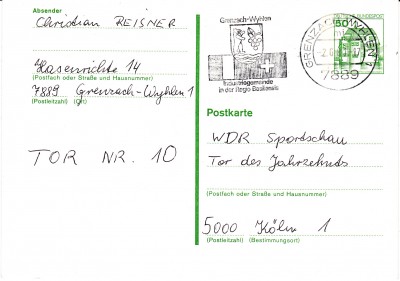 Absender
Christian REISNER
Hasenrichte 14
(Postfach oder Straße und Hausnummer)
7889 Grenzach-Wyhlen 1
(Postleitzahl) (Ort)
TOR NR. 10
Grenzach-Wyhlen
Industriegemeinde
in der Regio Basiliensis
GRENZACH-WYHLEN 1
7889
50
Postkarte
WDR Sportschau
Tor des Jahrzehnts
(Postfach oder Straße und Hausnummer)
5000 Köln 1
(Postleitzahl) (Bestimmungsort)